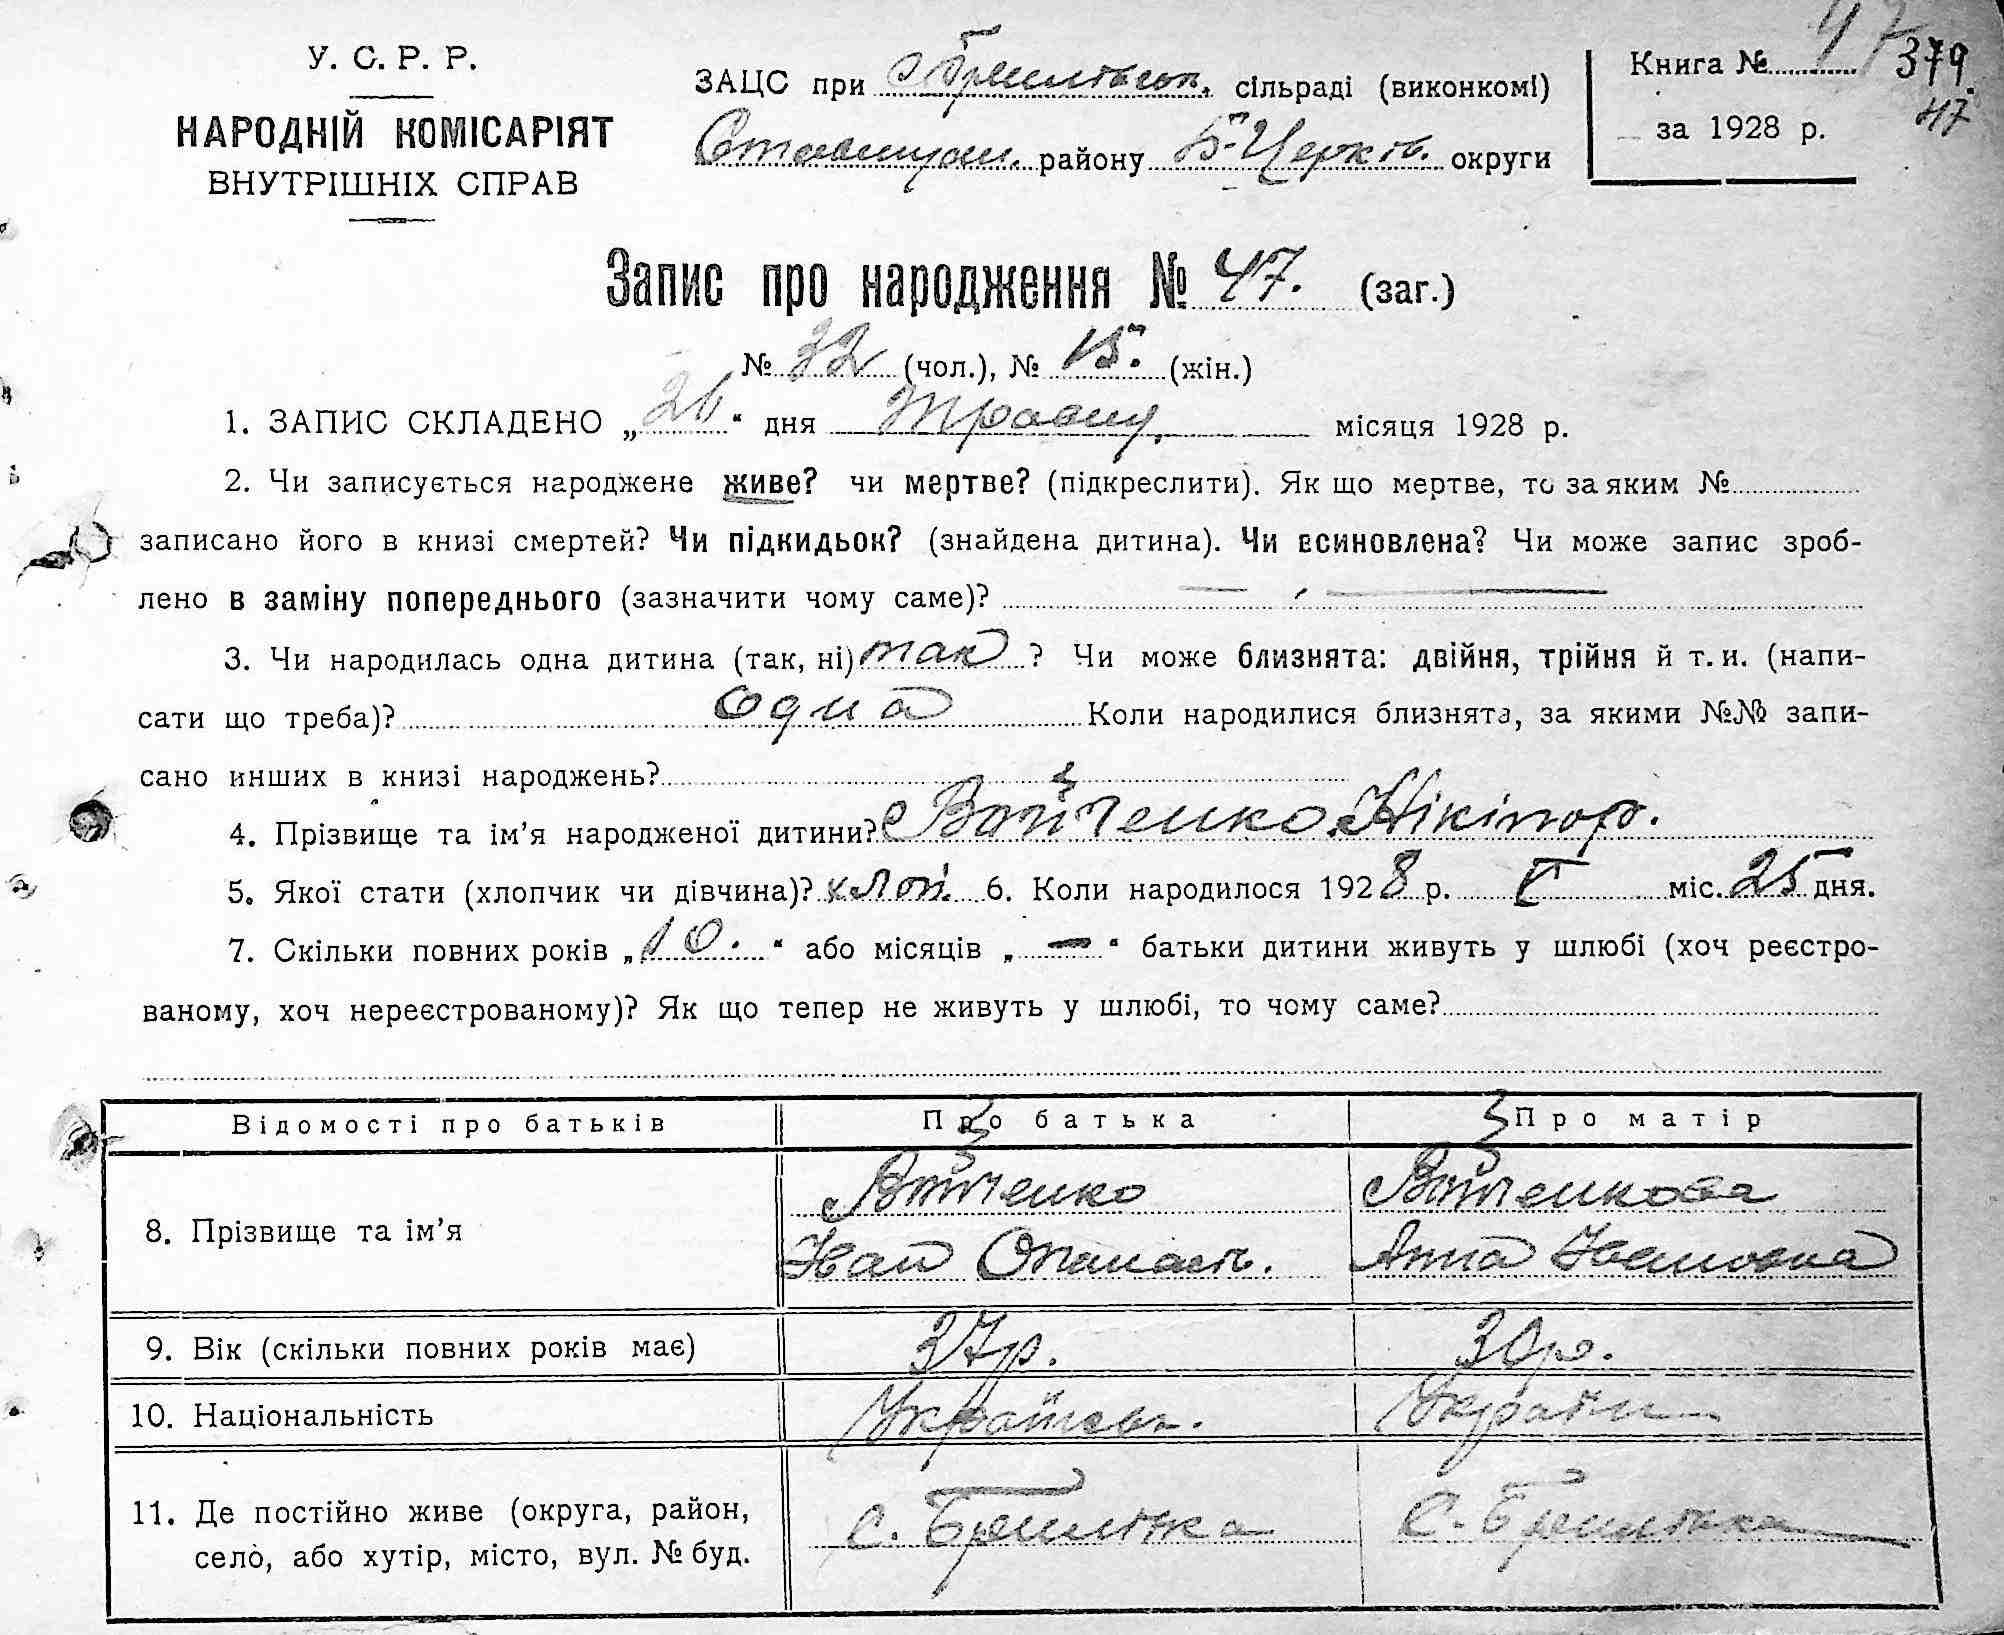 У. С. Р. Р.
НАРОДНІЙ КОМІСАРІЯТ
ВНУТРІШНІХ СПРАВ
ЗАЦС при сільраді (виконкомі)
району Б-Церків. округи
Книга № 47 379
за 1928 р. 47
Запис про народження № 47. (заг.)
№ 32 (чол.), № 15. (жін.)
1. ЗАПИС СКЛАДЕНО „26“ дня Травня місяця 1928 р.
2. Чи записується народжене живе? чи мертве? (підкреслити). Як що мертве, то за яким №
записано його в книзі смертей? Чи підкидьок? (знайдена дитина). Чи всиновлена? Чи може запис зроб-
лено в заміну попереднього (зазначити чому саме)?
3. Чи народилась одна дитина (так, ні) так ? Чи може близнята: двійня, трійня й т. и. (напи-
сати що треба)? одна Коли народилися близнята, за якими №№ запи-
сано инших в книзі народжень?
4. Прізвище та ім’я народженої дитини? Войченко Нікіпор.
5. Якої стати (хлопчик чи дівчина)? хлоп. 6. Коли народилося 1928 р. V міс. 25 дня.
7. Скільки повних років „10.“ або місяців „—“ батьки дитини живуть у шлюбі (хоч реєстро-
ваному, хоч нереєстрованому)? Як що тепер не живуть у шлюбі, то чому саме?
Відомості про батьків Про батька Про матір
8. Прізвище та ім’я
Войченко Войченкова
Іван Опанасів. Анна Івановна
9. Вік (скільки повних років має) 37р. 30р.
10. Національність Українськ. Україн
11. Де постійно живе (округа, район,
село, або хутір, місто, вул. № буд.